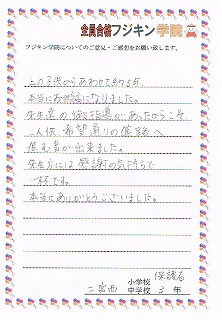 全員合格フジキン学院
フジキン学院についてのご意見・ご感想をお願い致します。
上の子供からあわせて約5年、
本当にお世話になりました。
先生達の御指導があったからこそ
二人供、希望通りの進路へ
進む事が出来ました。
先生方には感謝の気持ちで
一杯です。
本当にありがとうございました。
保護者
二宮西 小学校 中学校 3 年